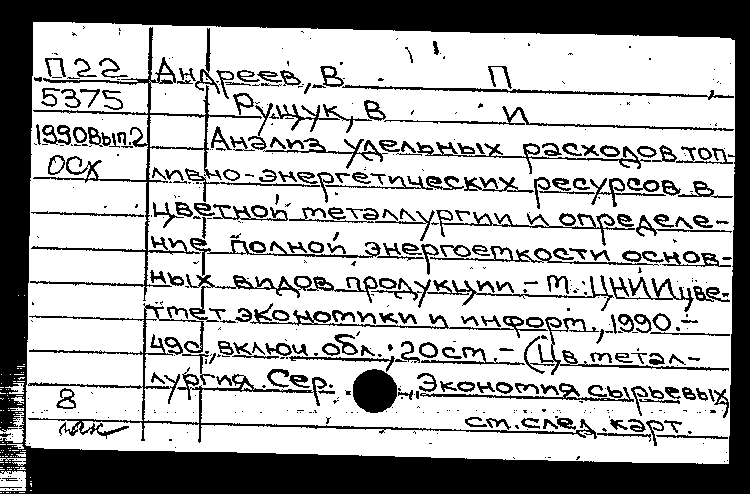 П22 Андреев, В П
5375 Рущук, В И
1990Вып.2 Анализ удельных расходов топ-
ОСХ ливно-энергетических ресурсов в
цветной металлургии и определе-
ние полной энергоемкости основ-
ных видов продукции.- М.:ЦНИИцве-
тмет экономики и информ., 1990.-
49с., включ. обл.; 20см.- (Цв. метал-
лургия. Сер. Экономия сырьевых,
8 см. след. карт.